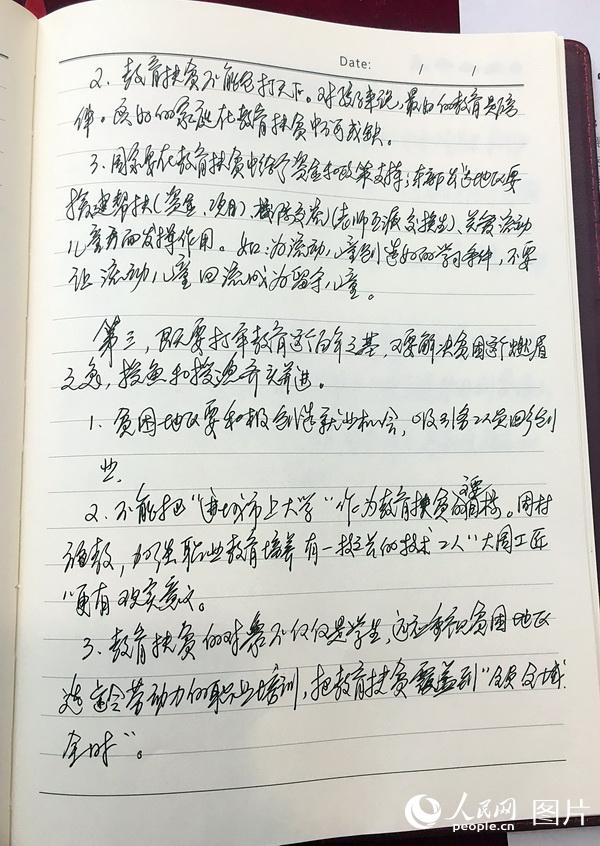 Date: / /
2、教育扶贫不能包打天下。对孩子来说,最好的教育是陪
伴。良好的家庭在教育扶贫中不可或缺。
3、国家要在教育扶贫中给予资金和政策支撑;东部发达地区要
搭建帮扶(资金、项目)、校际交流(老师互派交换生)、关爱流动
儿童方面发挥作用。如:为流动儿童创造好的学习条件,不要
让流动儿童回流成为留守儿童。
第三,既要打牢教育这个百年之基,又要解决贫困这个燃眉
之急,授鱼和授渔齐头并进。
1、贫困地区要积极创造就业机会,吸引务工人员回乡创
业。
2、不能把“进城市上大学”作为教育扶贫的主要目标。因材
施教,加强职业教育培养有一技之长的技术工人“大国工匠
”更有现实意义。
3、教育扶贫的对象不仅仅是学生,还应重视贫困地区
适龄劳动力的职业培训,把教育扶贫覆盖到“全员全域
全时”。
人民网 图片
people.cn